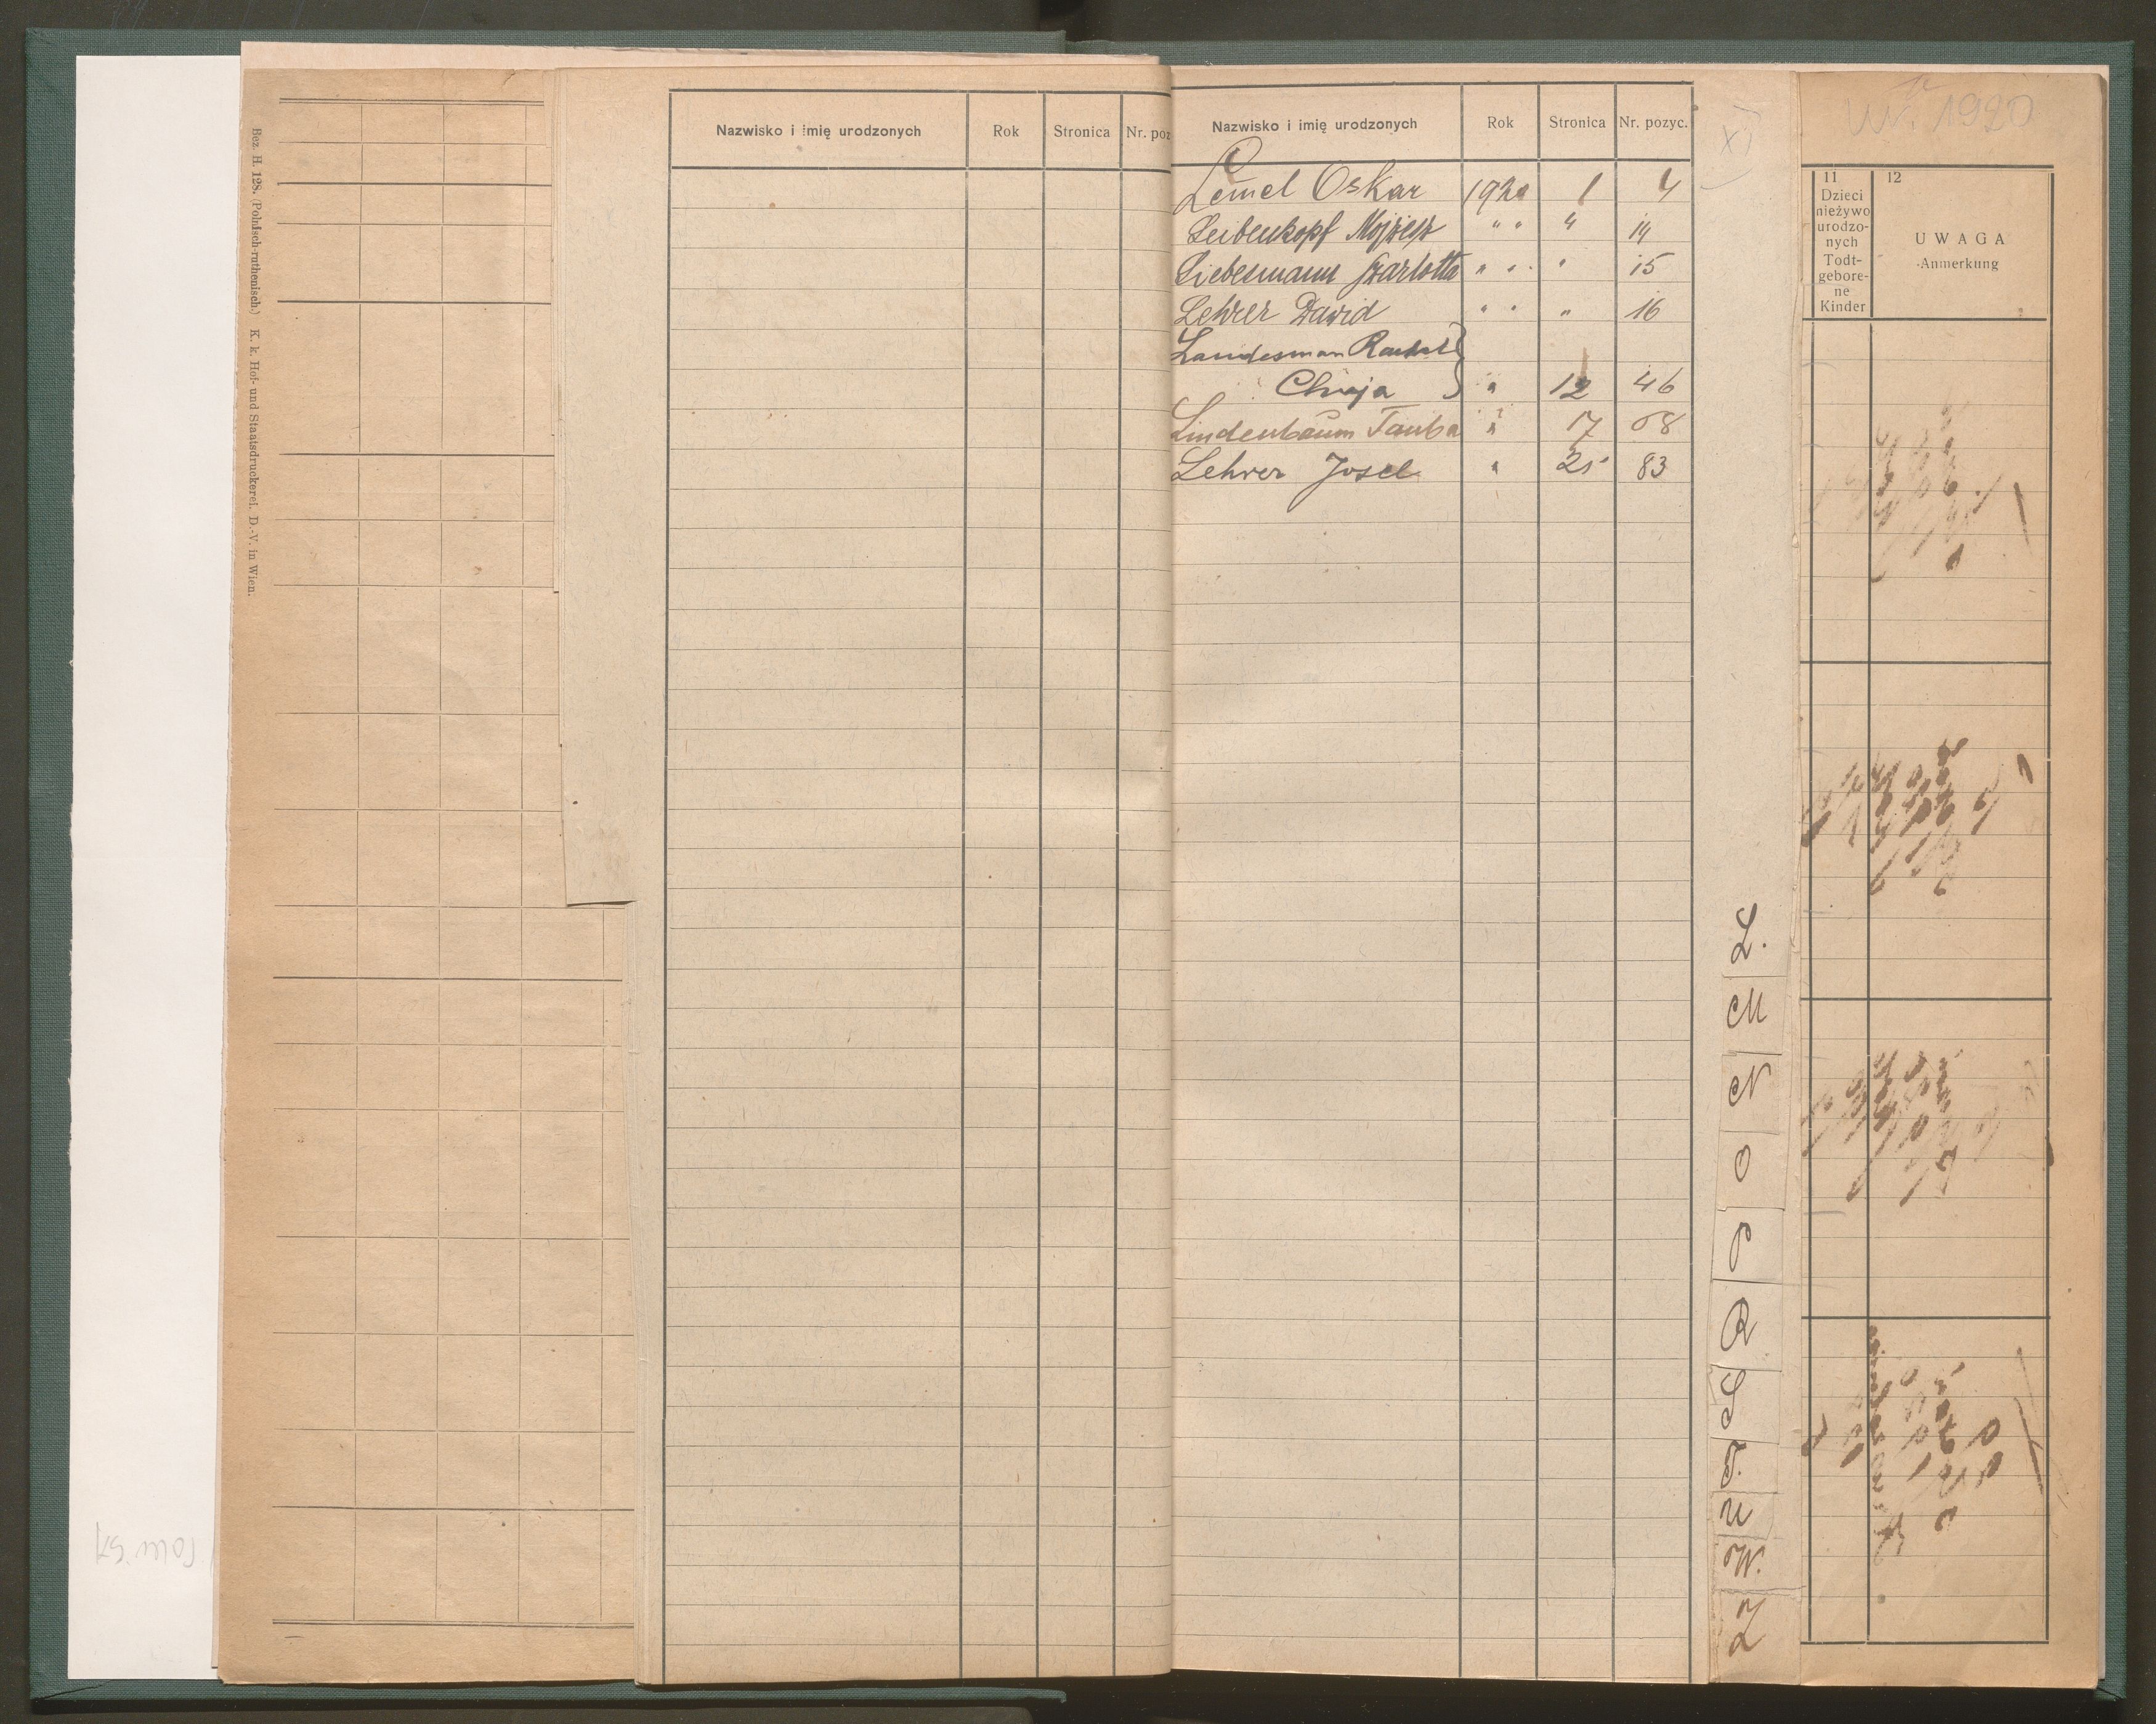 Bez. H. 128. (Polnisch-ruthenisch.) K. k. Hof- und Staatsdruckerei. D.-V. in Wien.
Nazwisko i imię urodzonych Rok Stronica Nr. poz
Nazwisko i imię urodzonych Rok Stronica Nr. pozyc.
Lemel Oskar 1920 1 4
Leibenkopf Mojżesz " " " 14
Liebesmann Szarlotta " " " 15
Lehrer Dawid " " " 16
Landesman Rachel }
Chaja } " 12 46
Lindenbaum Tauba " 17
Lehrer Josel " 21 83
XI
L.
M
N
O
P
R
S
T.
U
W.
Z
Ur. 1920
11 12
Dzieci
nieżywo
urodzo-
nych
Todt-
gebore-
ne
Kinder
UWAGA
Anmerkung